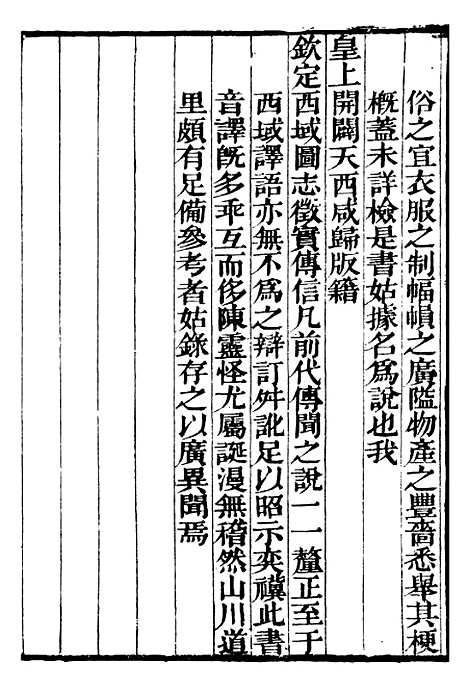 俗之宜衣服之制幅幀之廣隘物產之豐嗇悉舉其梗
概蓋未詳檢是書姑據名爲說也我
皇上開闢天西咸歸版籍
欽定西域圖志徵實傳信凡前代傳聞之說一一釐正至于
西域譯語亦無不爲之辯訂舛訛足以昭示奕禩此書
音譯旣多乖互而侈陳靈怪尤屬誕漫無稽然山川道
里頗有足備參考者姑錄存之以廣異聞焉